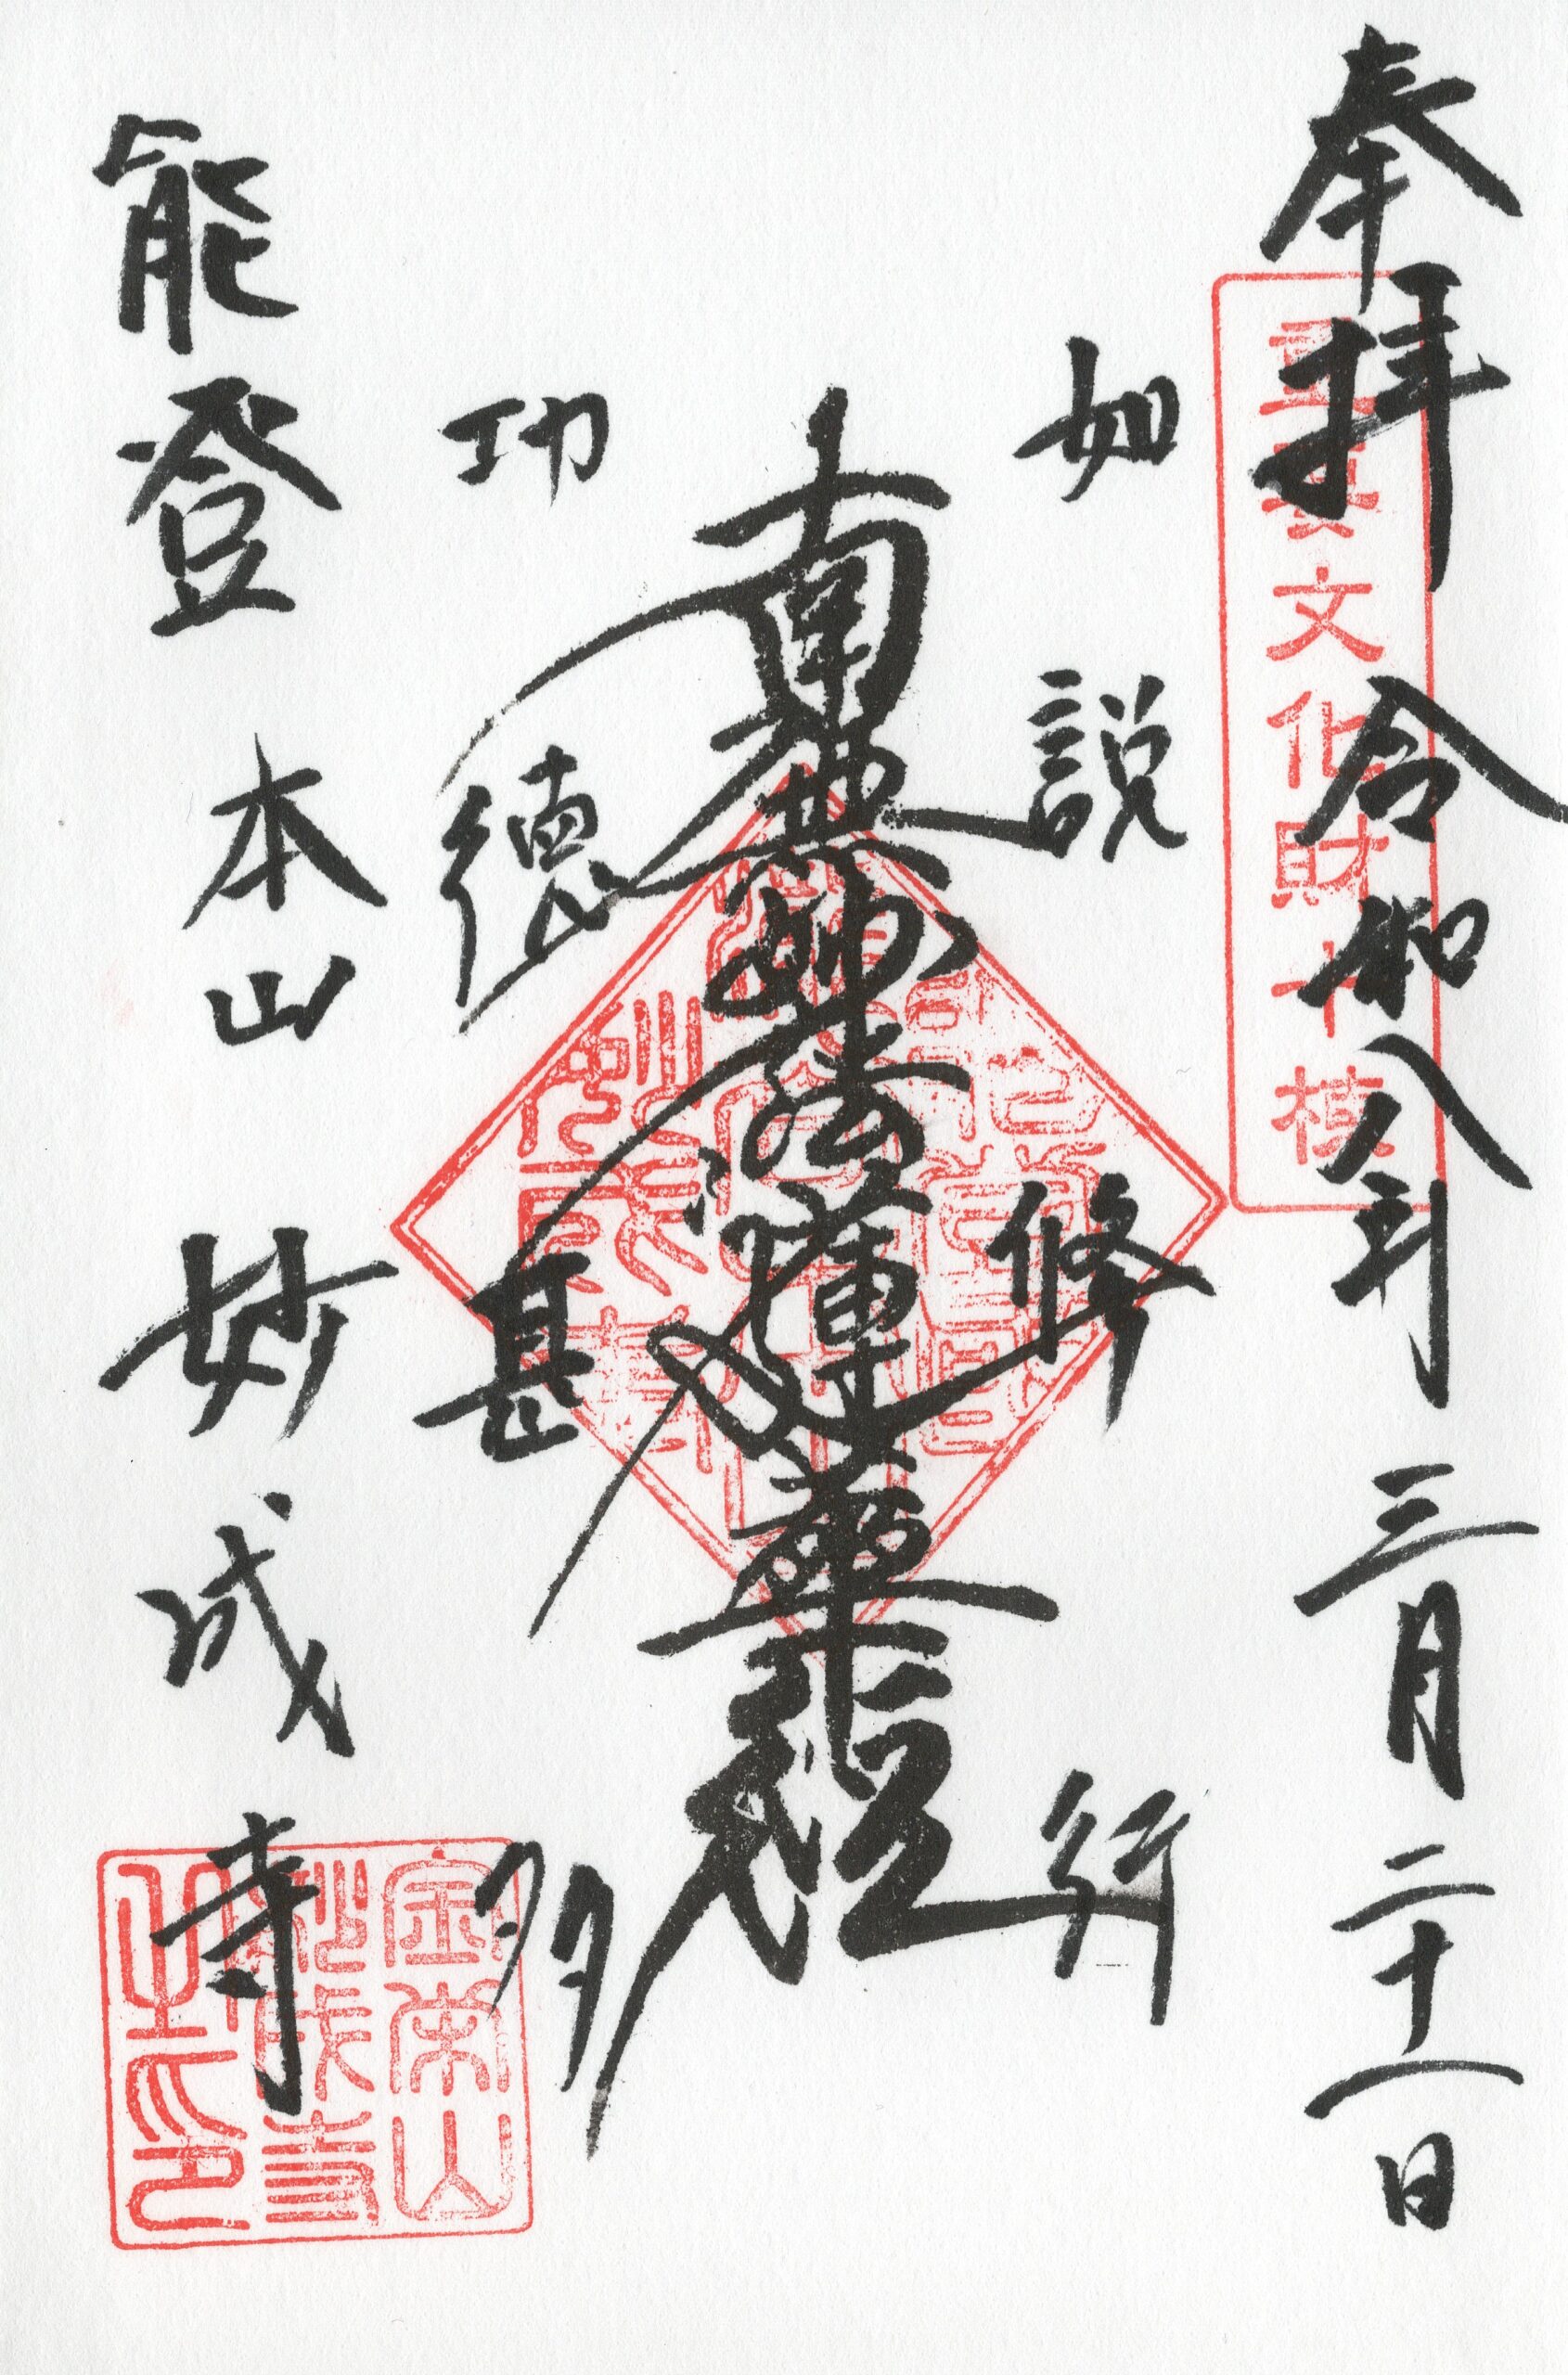 奉拝 令和八年三月二十一日
重要文化財十棟
如説修行
南無妙法蓮華経
功徳甚多
能登 本山 妙成寺
金榮山
妙成寺
之印